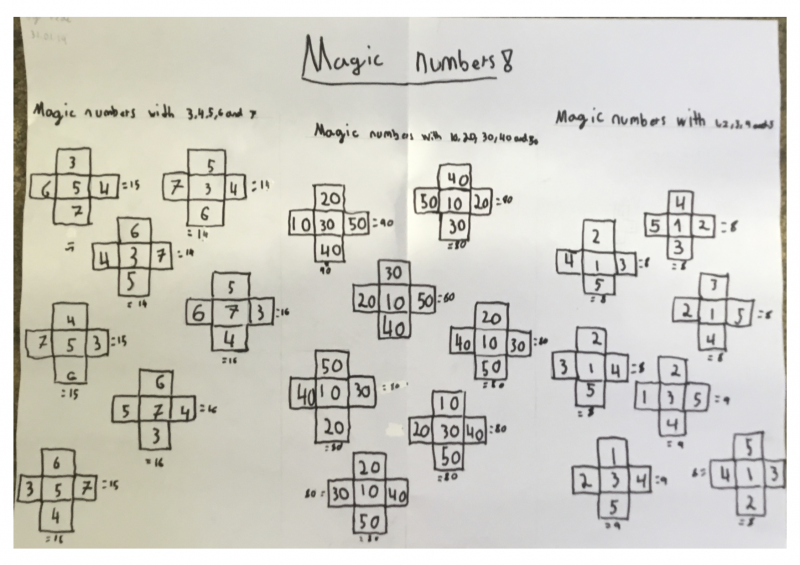 Magic numbers 8
Magic numbers with 3,4,5,6 and 7
3
6 5 4 =15
7
=
5
7 3 4 =14
6
=14
6
4 3 7 =14
5
=14
5
6 7 3 =16
4
=16
4
7 5 3 =15
6
=15
6
5 7 4 =16
3
=16
6
3 5 7 =15
4
=16
Magic numbers with 10, 20, 30, 40 and 50
20
10 30 50 =90
40
90
40
50 10 20 =80
30
=80
30
20 10 50 =80
40
20
40 10 30 =80
50
=80
50
40 10 30 =80
20
=80
10
20 30 40 =80
50
=80
20
80= 30 10 40
50
=80
Magic numbers with 1,2,3,4 and 5
2
4 1 3 =8
5
=8
4
5 1 2 =8
3
=8
3
2 1 5 =8
4
=8
2
3 1 4 =8
5
=8
2
1 3 5 =9
4
=9
1
2 3 4 =9
5
=9
5
8= 4 1 3
2
=8